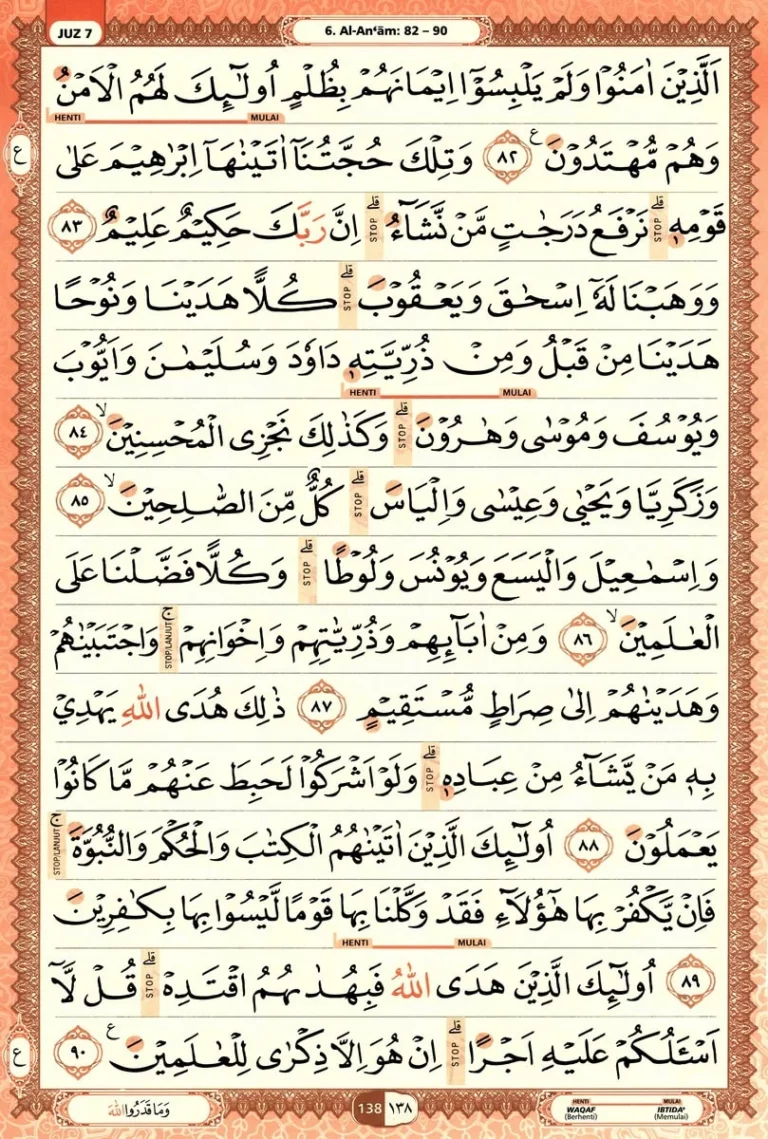 JUZ 7
6. Al-An‘ām: 82 – 90
اَلَّذِيْنَ اٰمَنُوْا وَلَمْ يَلْبِسُوْٓا اِيْمَانَهُمْ بِظُلْمٍ اُولٰۤىِٕكَ لَهُمُ الْاَمْنُ
HENTI MULAI
وَهُمْ مُّهْتَدُوْنَ ࣖ ٨٢ وَتِلْكَ حُجَّتُنَآ اٰتَيْنٰهَآ اِبْرٰهِيْمَ عَلٰى
ع
قَوْمِهٖ ۗ STOP نَرْفَعُ دَرَجٰتٍ مَّنْ نَّشَاۤءُ ۗ STOP اِنَّ رَبَّكَ حَكِيْمٌ عَلِيْمٌ ٨٣
وَوَهَبْنَا لَهٗٓ اِسْحٰقَ وَيَعْقُوْبَ ۗ STOP كُلًّا هَدَيْنَا وَنُوْحًا
هَدَيْنَا مِنْ قَبْلُ وَمِنْ ذُرِّيَّتِهٖ دَاوٗدَ وَسُلَيْمٰنَ وَاَيُّوْبَ
HENTI MULAI
وَيُوْسُفَ وَمُوْسٰى وَهٰرُوْنَ ۗ STOP وَكَذٰلِكَ نَجْزِى الْمُحْسِنِيْنَ ۙ ٨٤
وَزَكَرِيَّا وَيَحْيٰى وَعِيْسٰى وَاِلْيَاسَ ۗ STOP كُلٌّ مِّنَ الصّٰلِحِيْنَ ۙ ٨٥
وَاِسْمٰعِيْلَ وَالْيَسَعَ وَيُوْنُسَ وَلُوْطًا ۗ STOP وَكُلًّا فَضَّلْنَا عَلَى
الْعٰلَمِيْنَ ۙ ٨٦ وَمِنْ اٰبَاۤىِٕهِمْ وَذُرِّيّٰتِهِمْ وَاِخْوَانِهِمْ ۚ STOP/LANJUT وَاجْتَبَيْنٰهُمْ
وَهَدَيْنٰهُمْ اِلٰى صِرَاطٍ مُّسْتَقِيْمٍ ٨٧ ذٰلِكَ هُدَى اللّٰهِ يَهْدِيْ
بِهٖ مَنْ يَّشَاۤءُ مِنْ عِبَادِهٖ ۗ STOP وَلَوْ اَشْرَكُوْا لَحَبِطَ عَنْهُمْ مَّا كَانُوْا
يَعْمَلُوْنَ ٨٨ اُولٰۤىِٕكَ الَّذِيْنَ اٰتَيْنٰهُمُ الْكِتٰبَ وَالْحُكْمَ وَالنُّبُوَّةَ ۚ STOP/LANJUT
فَاِنْ يَّكْفُرْ بِهَا هٰٓؤُلَاۤءِ فَقَدْ وَكَّلْنَا بِهَا قَوْمًا لَّيْسُوْا بِهَا بِكٰفِرِيْنَ
HENTI MULAI
٨٩ اُولٰۤىِٕكَ الَّذِيْنَ هَدَى اللّٰهُ فَبِهُدٰىهُمُ اقْتَدِهْ ۗ STOP قُلْ لَّآ
اَسْـَٔلُكُمْ عَلَيْهِ اَجْرًا ۗ STOP اِنْ هُوَ اِلَّا ذِكْرٰى لِلْعٰلَمِيْنَ ࣖ ٩٠
ع
وَمَا قَدَرُوا اللّٰهَ
138 ١٣٨
HENTI MULAI
WAQAF IBTIDA’
(Berhenti) (Memulai)